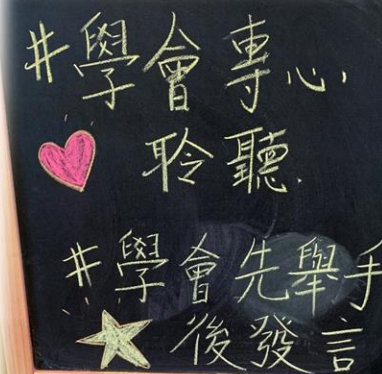 #學會專心,
聆聽.
#學會先舉手
後發言